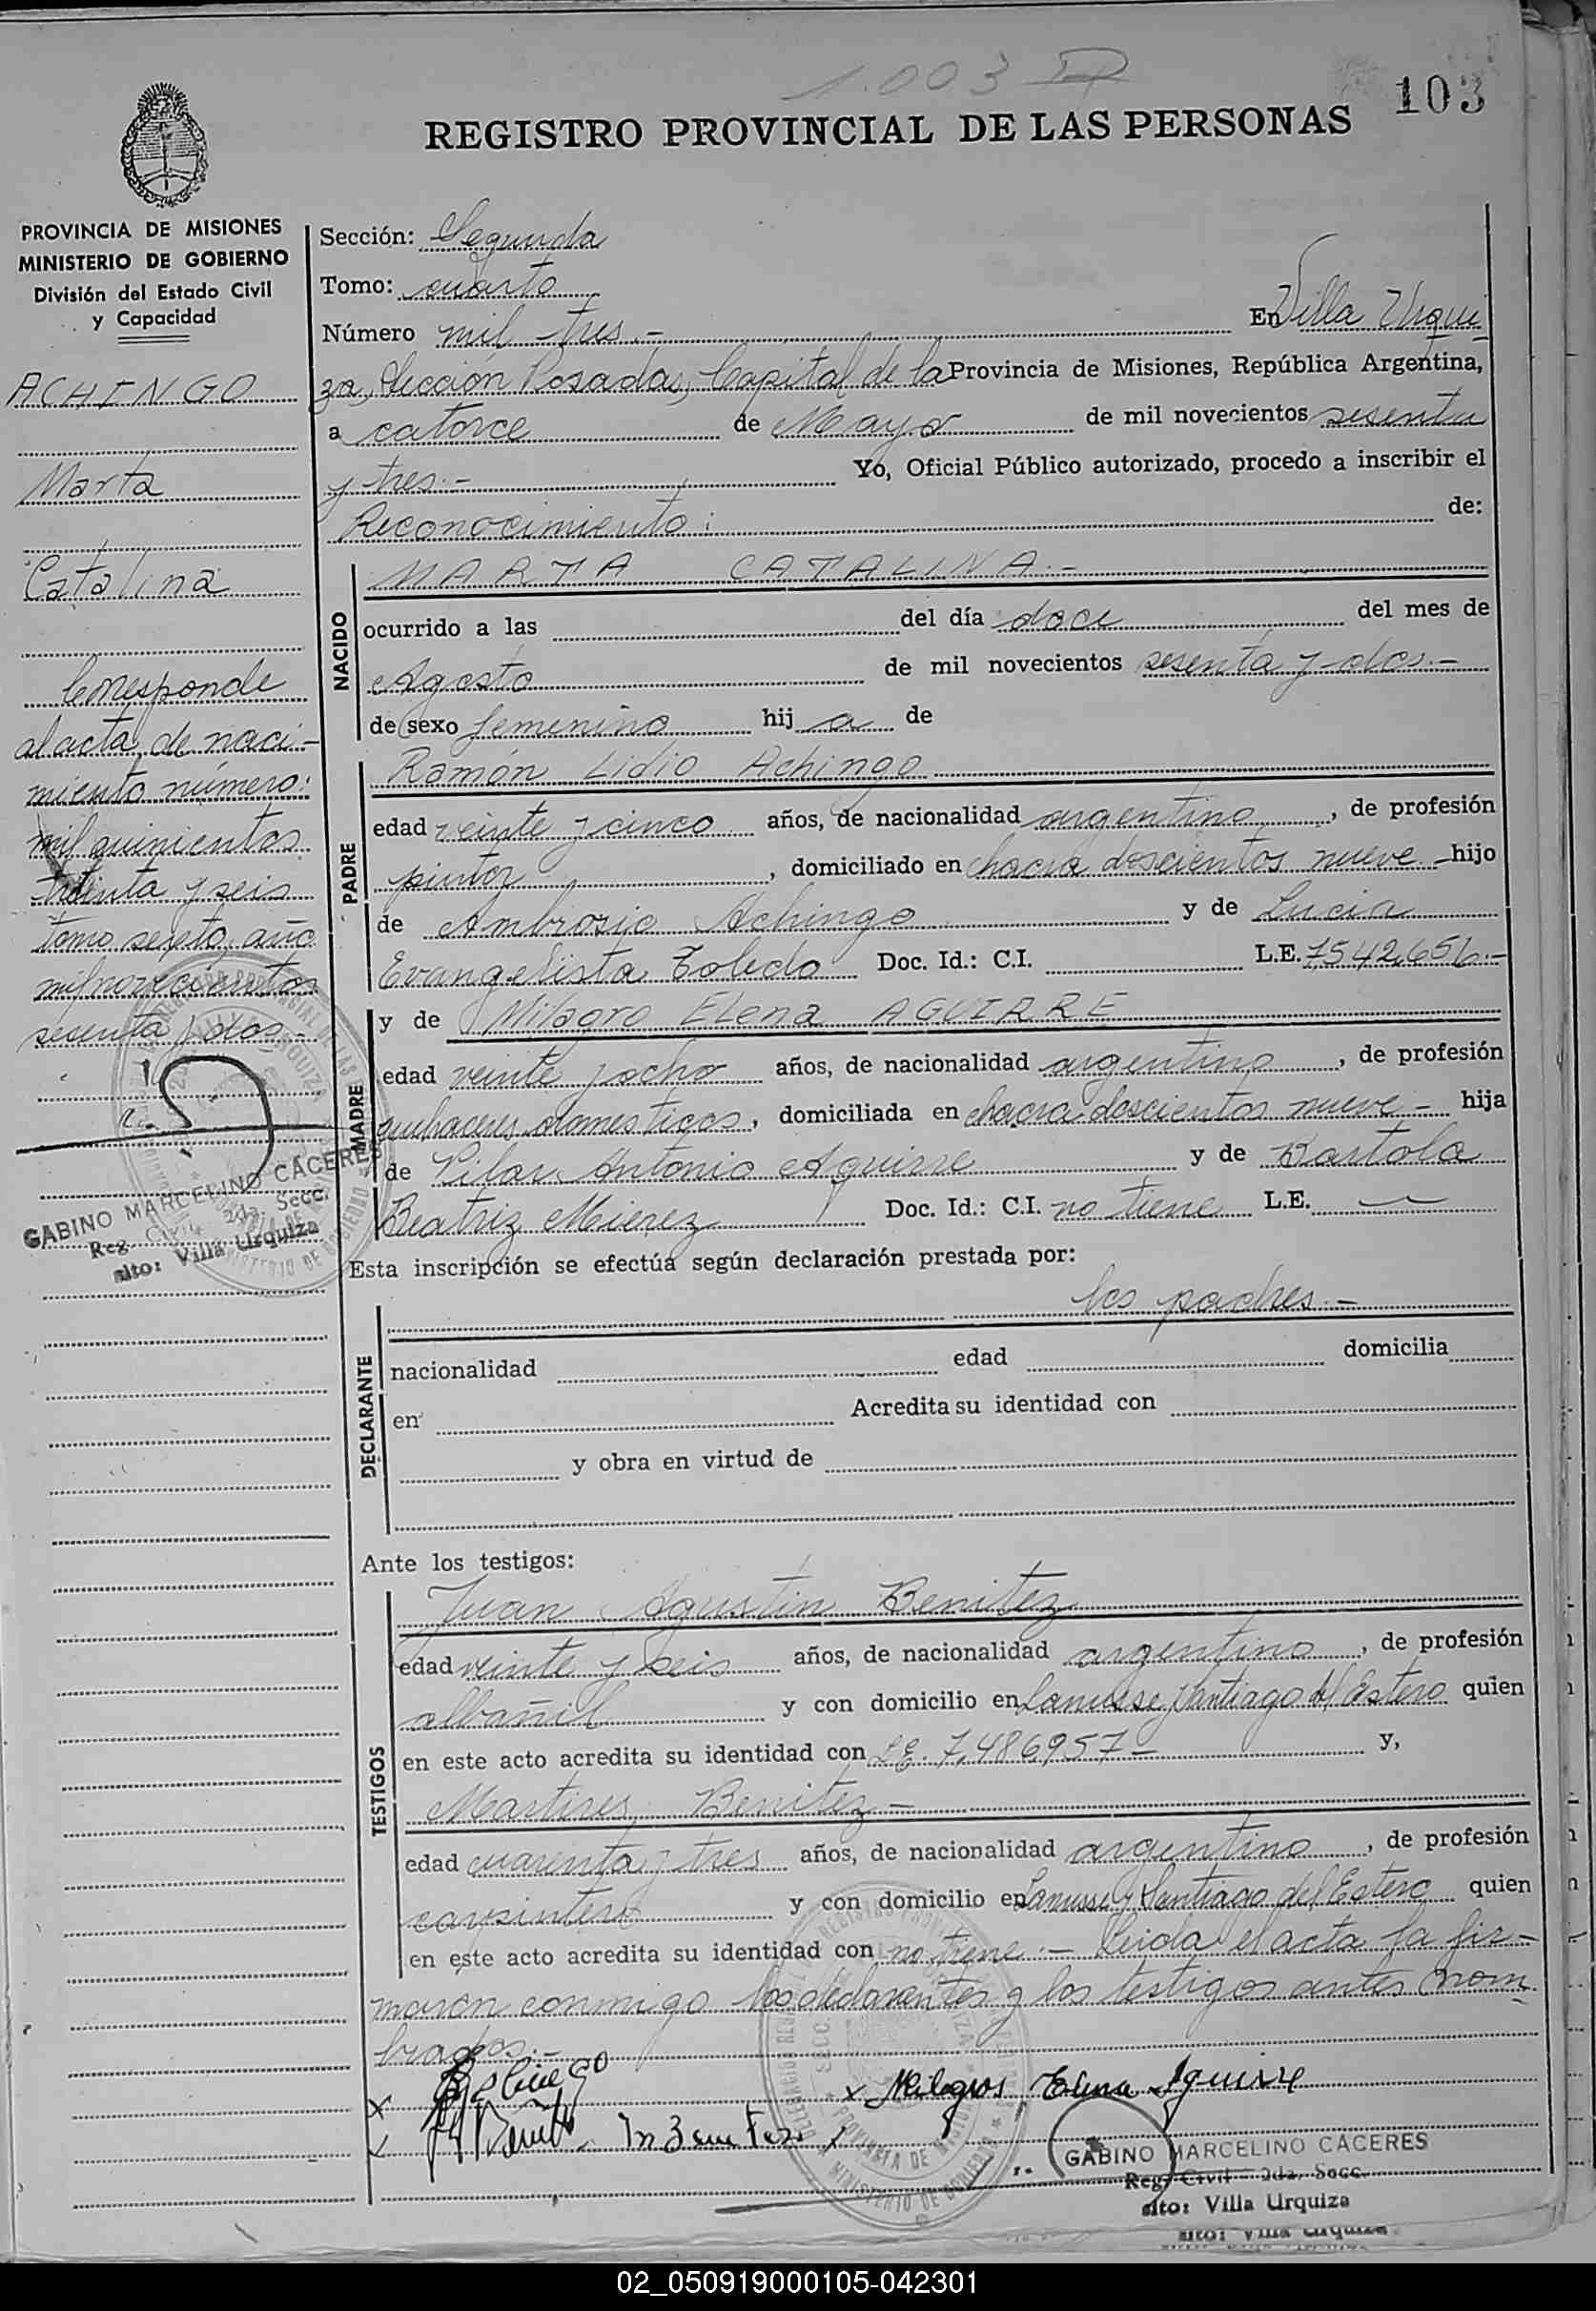 1.003
103
REGISTRO PROVINCIAL DE LAS PERSONAS
PROVINCIA DE MISIONES
MINISTERIO DE GOBIERNO
División del Estado Civil
y Capacidad
ACHINGO
Marta
Catalina
Corresponde
al acta de naci-
miento número:
mil quinientos
treinta y seis
tomo sexto, año
mil novecientos
sesenta y dos.-
GABINO MARCELINO CACERES
Reg. Civil 2da. Secc.
sito: Villa Urquiza
Sección: Segunda
Tomo: cuarto
Número mil tres.- En Villa Urqui
za, Sección Posadas, Capital de la Provincia de Misiones, República Argentina,
a catorce de Mayo de mil novecientos sesenta
y tres.- Yo, Oficial Público autorizado, procedo a inscribir el
Reconocimiento: de:
NACIDO
MARTA CATALINA.-
ocurrido a las del día doce del mes de
Agosto de mil novecientos sesenta y dos.-
de sexo femenino hij a de
PADRE
Ramón Lidio Achingo
edad veinte y cinco años, de nacionalidad argentino, de profesión
pintor, domiciliado en chacra doscientos nueve - hijo
de Ambrosio Achingo y de Lucia
Evangelista Toledo Doc. Id.: C.I. L.E. 7542.656.-
MADRE
y de Milagro Elena AGUIRRE
edad veinte y ocho años, de nacionalidad argentina, de profesión
quehaceres domesticos, domiciliada en chacra doscientos nueve - hija
de Pilar Antonio Aguirre y de Bartola
Beatriz Mierez Doc. Id.: C.I. no tiene L.E. —
Esta inscripción se efectúa según declaración prestada por:
los padres.-
DECLARANTE
nacionalidad edad domicilia
en Acredita su identidad con
y obra en virtud de
Ante los testigos:
TESTIGOS
Juan Agustin Benitez
edad veinte y seis años, de nacionalidad argentino, de profesión
albañil y con domicilio en Lanusse y Santiago del Estero quien
en este acto acredita su identidad con L.E. 7.486957 - y,
Martires Benitez -
edad cuarenta y tres años, de nacionalidad argentino, de profesión
carpintero y con domicilio en Lanusse y Santiago del Estero quien
en este acto acredita su identidad con no tiene.- Leida el acta la fir-
maron conmigo los declarantes y los testigos antes nom
brados.-
x x Milagros Elena Aguirre
GABINO MARCELINO CACERES
Reg. Civil - 2da. Secc.
sito: Villa Urquiza
sito: Villa Urquiza
02_050919000105-042301